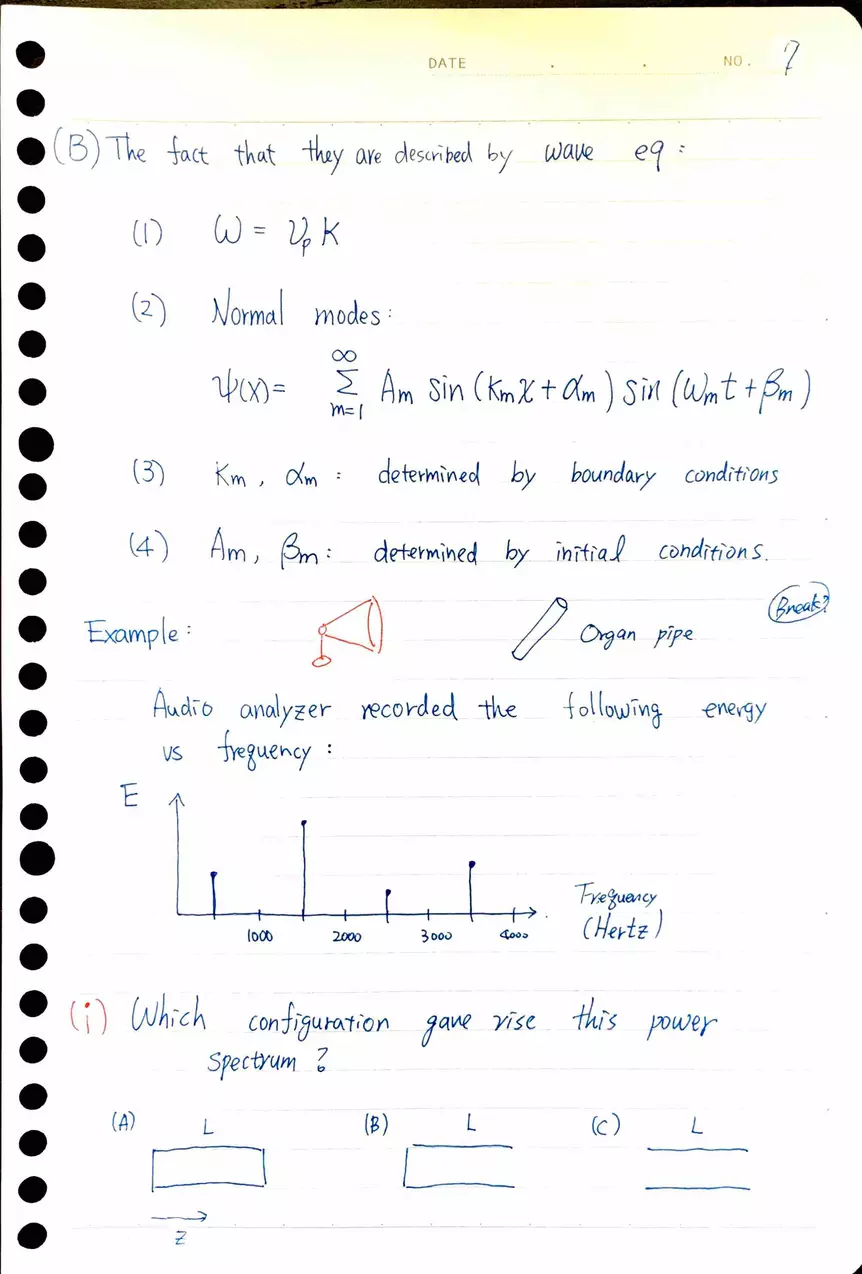 DATE . . NO. 7
(B) The fact that they are described by wave eq :
(1) ω = υₚ k
(2) Normal modes :
ψ(x) = ∞ Σ m=1 Am sin (km x + αm) sin (ωm t + βm)
(3) km , αm : determined by boundary conditions
(4) Am , βm : determined by initial conditions.
Break?
Example : Organ pipe
Audio analyzer recorded the following energy
vs frequency :
E
Frequency
(Hertz)
1000 2000 3000 4000
(i) Which configuration gave rise this power
spectrum ?
(A) L (B) L (C) L
z